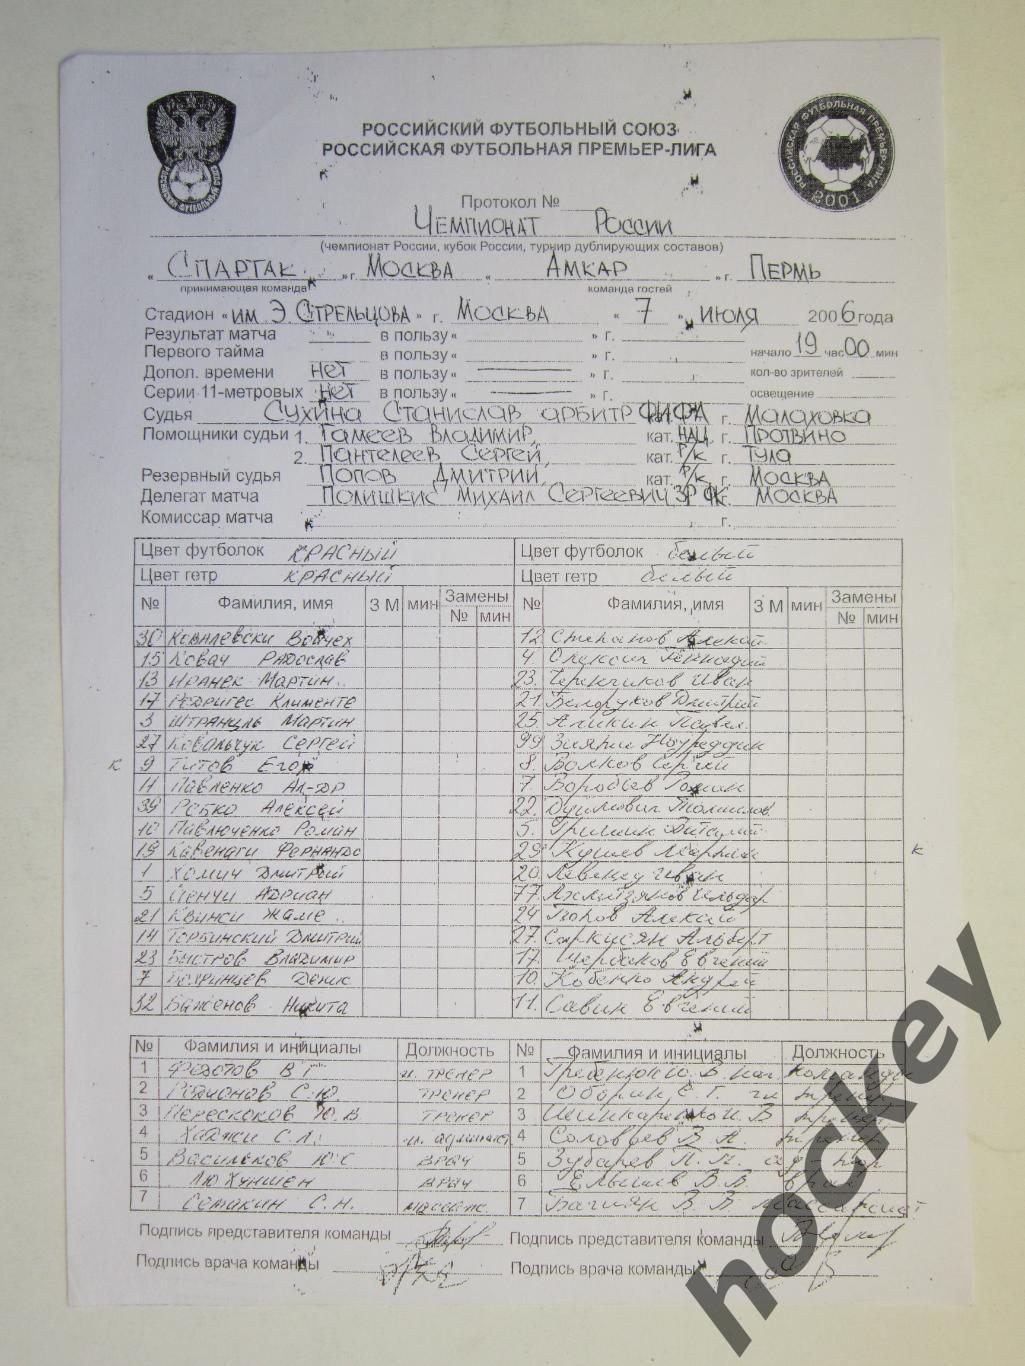 РОССИЙСКИЙ ФУТБОЛЬНЫЙ СОЮЗ
РОССИЙСКАЯ ФУТБОЛЬНАЯ ПРЕМЬЕР-ЛИГА
РОССИЙСКАЯ ФУТБОЛЬНАЯ ПРЕМЬЕР-ЛИГА
2001
Протокол №
ЧЕМПИОНАТ РОССИИ
(чемпионат России, кубок России, турнир дублирующих составов)
" СПАРТАК " г. МОСКВА " АМКАР " г. ПЕРМЬ
принимающая команда команда гостей
Стадион " ИМ. Э. СТРЕЛЬЦОВА " г. МОСКВА " 7 " ИЮЛЯ 2006 года
Результат матча в пользу " " г. начало 19 час 00 мин
Первого тайма в пользу " " г.
Допол. времени НЕТ в пользу " " г. кол-во зрителей
Серии 11-метровых НЕТ в пользу " " г. освещение
Судья СУХИНА СТАНИСЛАВ АРБИТР ФИФА г. МАЛАХОВКА
Помощники судьи 1. ГАМЕЕВ ВЛАДИМИР, кат. НАЦ. г. ПРОТВИНО
2. ПАНТЕЛЕЕВ СЕРГЕЙ, кат. Р/К г. ТУЛА
Резервный судья ПОПОВ ДМИТРИЙ, кат. Р/К г. МОСКВА
Делегат матча ПОЛИШКИС МИХАИЛ СЕРГЕЕВИЧ ЗР ФК г. МОСКВА
Комиссар матча г.
Цвет футболок КРАСНЫЙ Цвет футболок белый
Цвет гетр КРАСНЫЙ Цвет гетр белый
№ Фамилия, имя З М мин Замены № мин № Фамилия, имя З М мин Замены № мин
30 Ковалевски Войчех 12. Степанов Алексей
15 Ковач Радослав 4. Олексич Геннадий
13 Иранек Мартин 23. Черенчиков Иван
17 Родригес Клименте 21. Белоруков Дмитрий
3 Штранцль Мартин 25. Аликин Павел
27 Ковальчук Сергей 99 Зияти Ноуреддин
к 9 Титов Егор 8. Волков Сергей
11 Павленко Ал-др 7. Воробьев Роман
39 Ребко Алексей 22. Дуймович Томислав
10 Павлюченко Роман 5. Гришин Виталий
19 Кавенаги Фернандо 29. Кушев Мартин к
1 Хомич Дмитрий 20. Левенец Иван
5 Йенчи Адриан 77. Ахметзянов Ильдар
21 Квинси Жаме 24 Попов Алексей
14 Торбинский Дмитрий 27. Саркисян Альберт
23 Быстров Владимир 17. Щербаков Евгений
7 Бояринцев Денис 10. Кобенко Андрей
32 Баженов Никита 11. Савин Евгений
№ Фамилия и инициалы Должность № Фамилия и инициалы Должность
1 Федотов В Г тренер 1 нач. команды
2 Родионов С.Ю. тренер 2 Оборин С. Г. гл тренер
3 Перескоков Ю.В тренер 3 И. В тренер
4 Хаджи С.Л. админист 4 Соловьев В. А. тренер
5 Васильков Ю.С врач 5 Зубарев
6 Лю Хуншен врач 6 В. В. врач
7 Семакин С.Н. массаж. 7 В. В. массажист
Подпись представителя команды Подпись представителя команды
Подпись врача команды Подпись врача команды
hockey